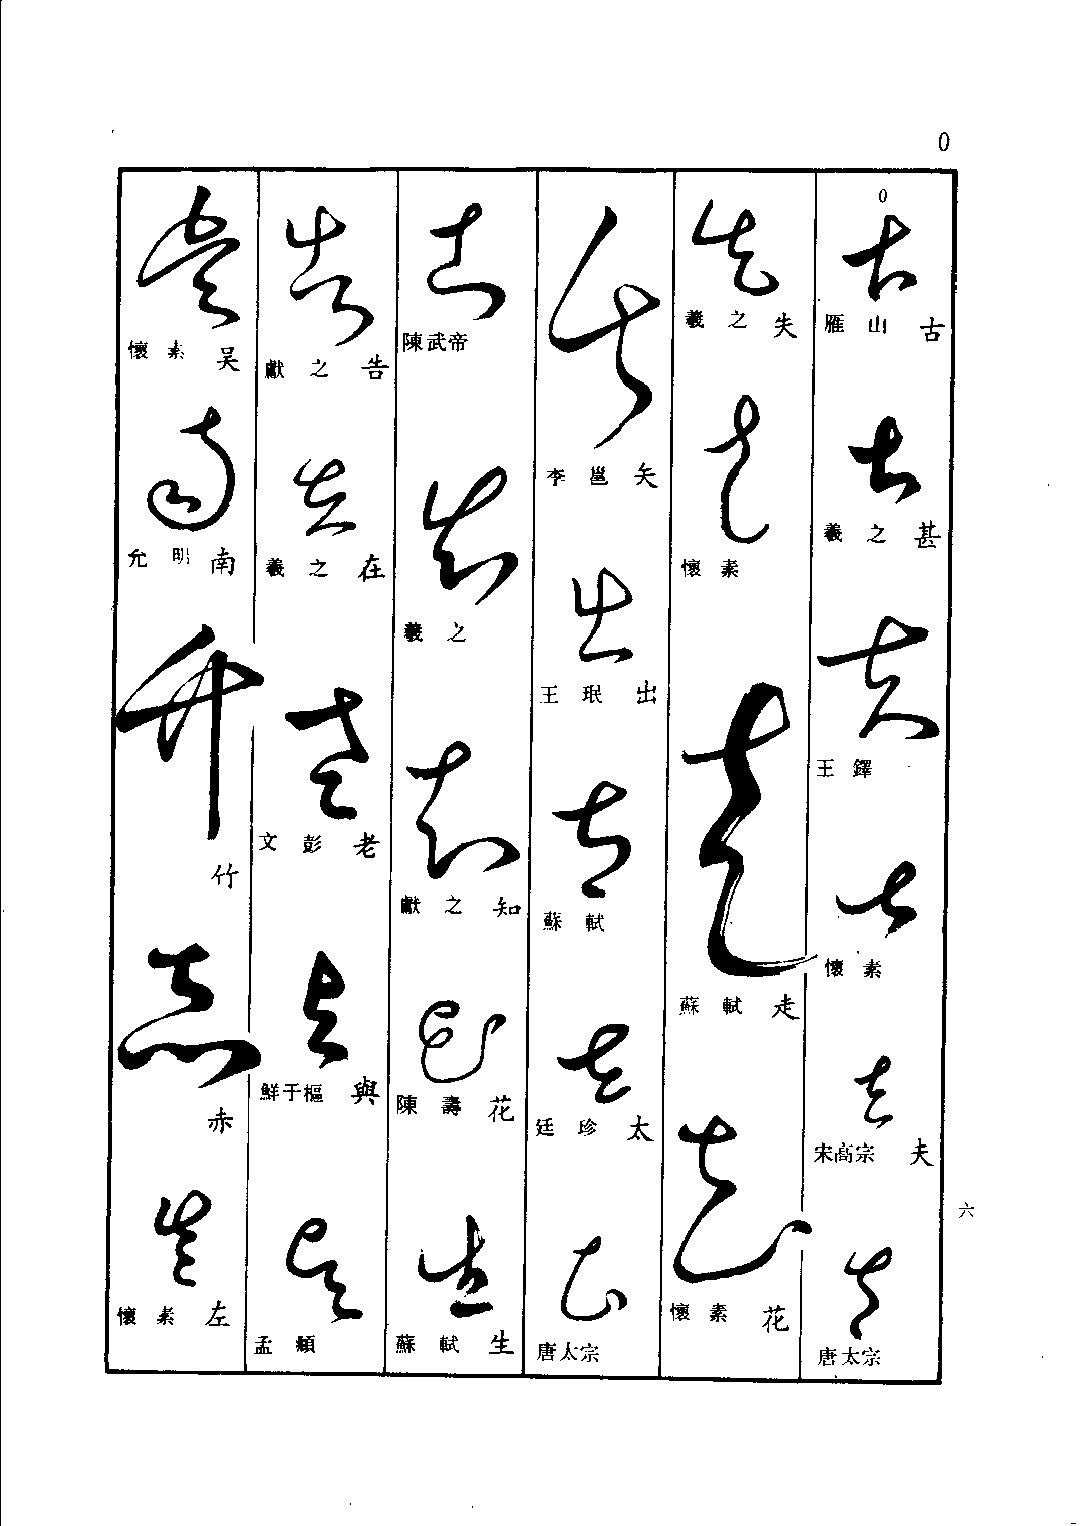 0
0
雁山 古
羲之 甚
王鐸
懷素
宋高宗 夫
唐太宗
羲之 失
懷素
蘇軾 走
懷素 花
李邕 矢
王珉 出
蘇軾
廷珍 太
唐太宗
陳武帝
羲之
獻之 知
陳壽 花
蘇軾 生
獻之 告
羲之 在
文彭 老
鮮于樞 與
孟頫
懷素 吴
允明 南
竹
赤
懷素 左
六